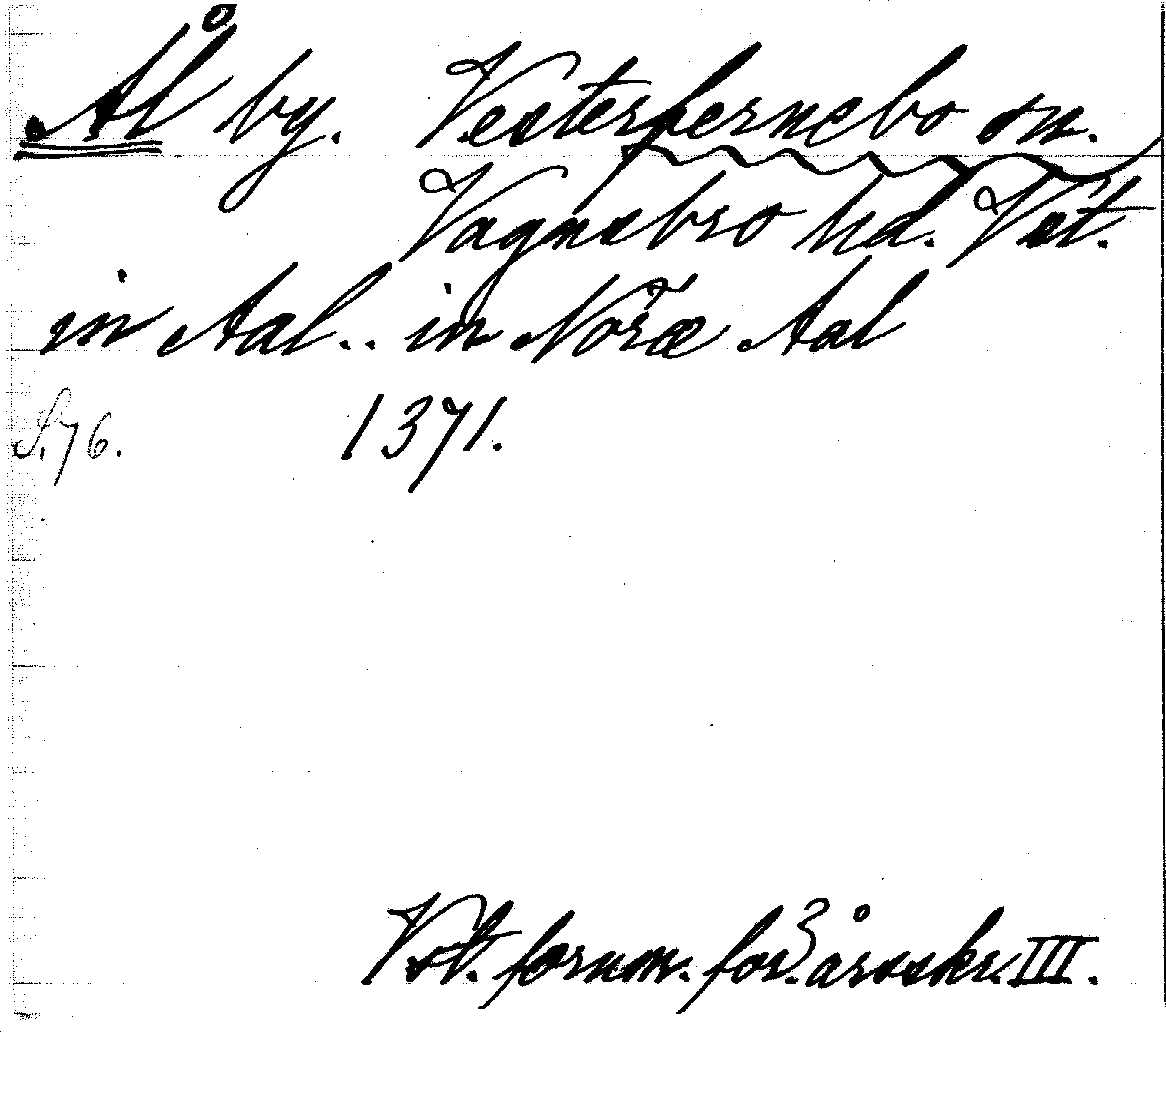 Ål by. Vesterfernebo sn.
Vagnsbro hd. Vst.
in Aal.. in Nöræ Aal
S. 76. 1371.
Vstl. fornm. för:s årsskr. III.